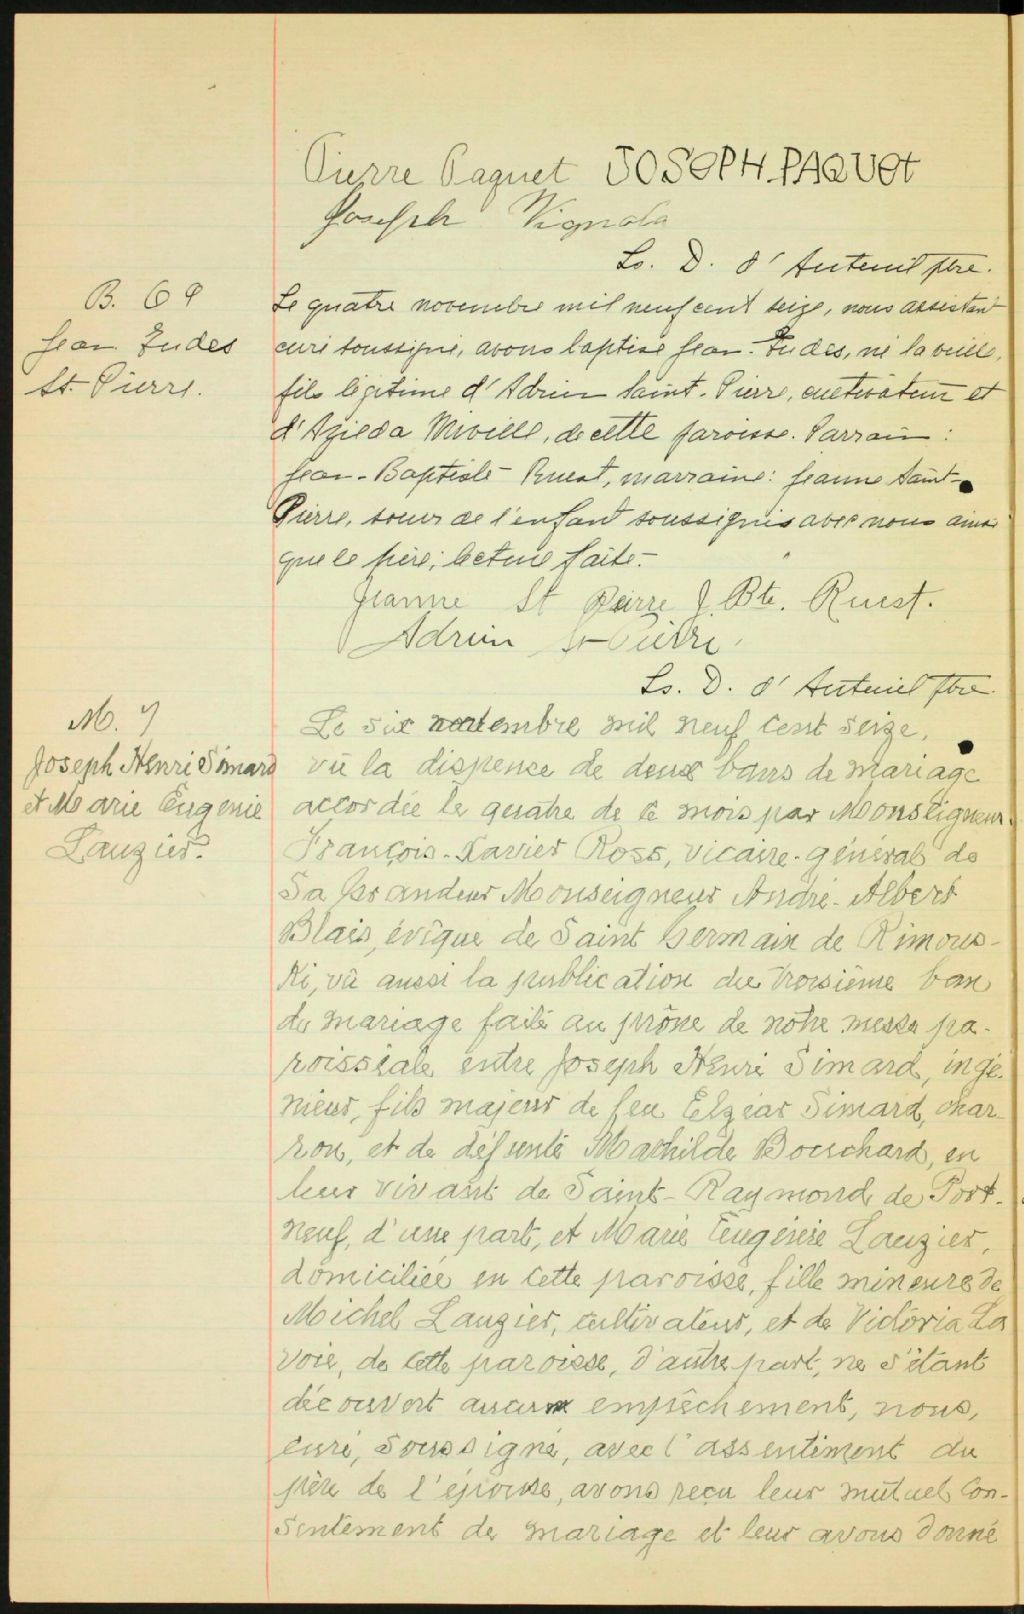 Pierre Paquet JOSEPH PAQUET
Joseph Vignola
Ls. D. d'Auteuil ptre.
B. 69
Jean Eudes
St. Pierre.
Le quatre novembre mil neuf cent seize, nous assistant
curé soussigné, avons baptisé Jean-Eudes, né la veille,
fils légitime d'Adrien Saint-Pierre, cultivateur et
d'Azilda Miville, de cette paroisse. Parrain:
Jean-Baptiste Ruest, marraine: Jeanne Saint-
Pierre, soeur de l'enfant soussignés avec nous ainsi
que le père; lecture faite.-
Jeanne St Pierre J. Bte. Ruest.
Adrien St-Pierre
Ls. D. d'Auteuil ptre.
M. 7
Joseph Henri Simard
et Marie Eugenie
Lauzier.
Le six novembre mil neuf cent seize,
vû la dispence de deux bans de mariage
accordée le quatre de ce mois par Monseigneur
François-Xavier Ross, vicaire-général de
Sa Grandeur Monseigneur André-Albert
Blais, évêque de Saint Germain de Rimous-
ki, vû aussi la publication du troisième ban
de mariage faite au prône de notre messe pa-
roissiale entre Joseph Henri Simard, ingé-
nieur, fils majeur de feu Elzéar Simard, char-
ron, et de défunte Mathilde Bouchard, en
leur vivant de Saint-Raymond de Port-
neuf, d'une part, et Marie Eugénie Lauzier,
domiciliée en cette paroisse, fille mineure de
Michel Lauzier, cultivateur, et de Victoria La
voie, de cette paroisse, d'autre part, ne s'étant
découvert aucun empêchement, nous,
curé, soussigné, avec l'assentiment du
père de l'épouse, avons reçu leur mutuel con-
sentement de mariage et leur avons donné